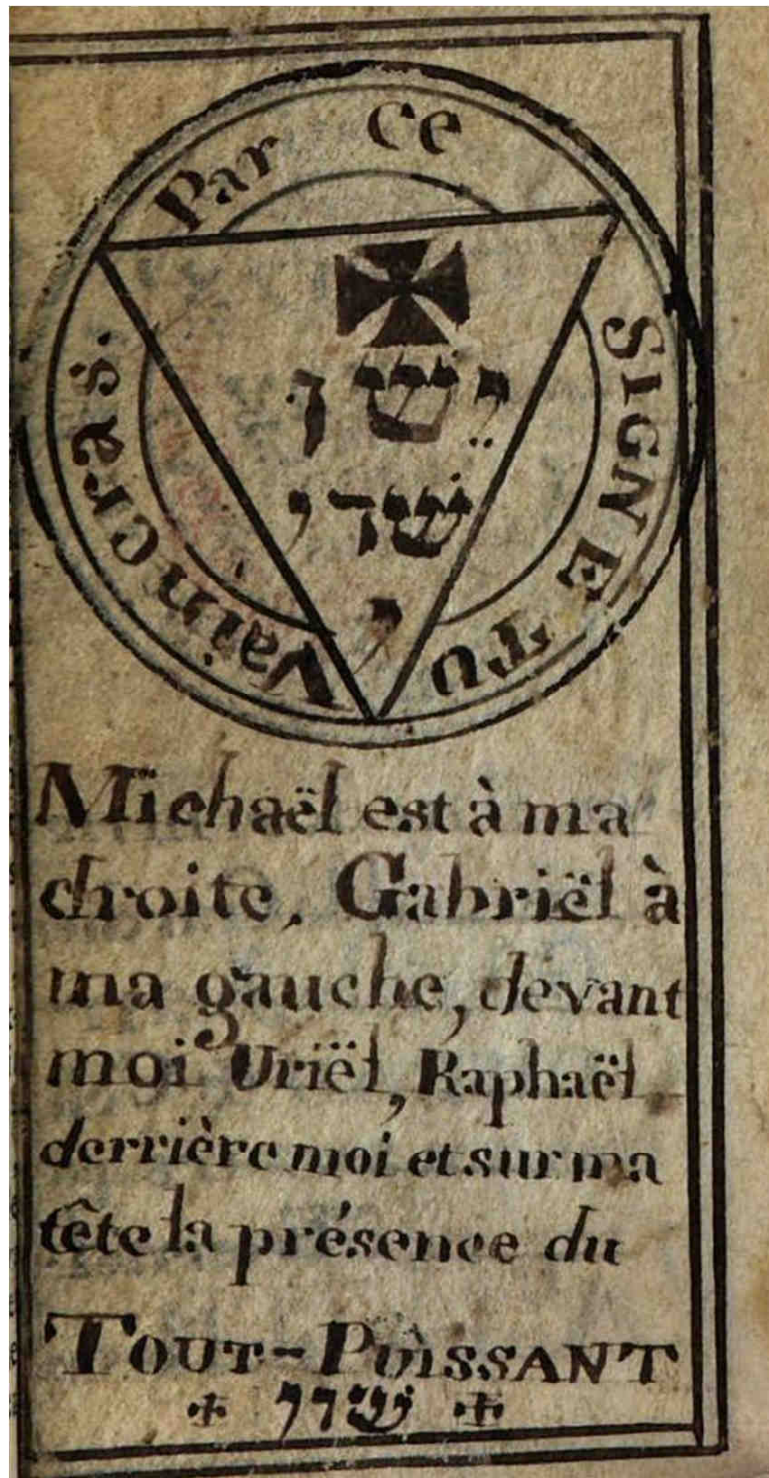 Par ce SIGNE TU Vaincras.
שׁדי
י
Michaël est à ma
droite, Gabriël à
ma gauche, devant
moi Uriël, Raphaël
derrière moi et sur ma
tête la présence du
TOUT-PUISSANT